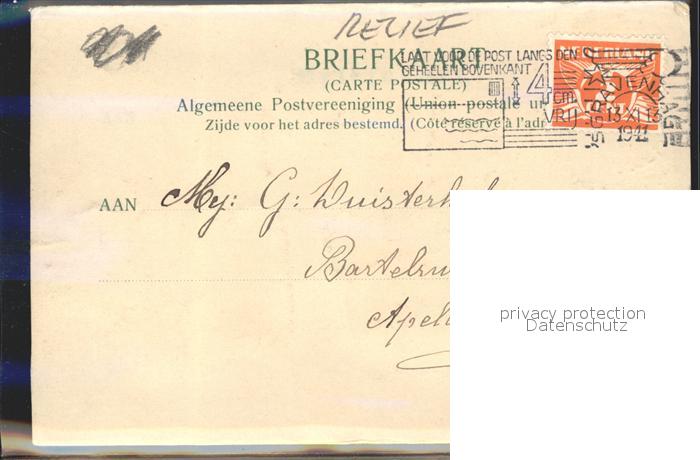 RELIEF
BRIEFKAART
(CARTE POSTALE)
Algemeene Postvereeniging (Union postale un
Zijde voor het adres bestemd. (Côté réservé à l'adr
LAAT VOOR DE POST LANGS DEN
GEHEELEN BOVENKANT
4 cm
VRIJ
NEDERLAND
'SGRAVENHAGE
13 XI 13
1941
AAN Mej: G: Duisterh
Bartels
Apel
privacy protection
Datenschutz